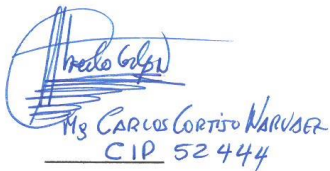 Mg CARLOS CORTIJO NARVAEZ
CIP 52444